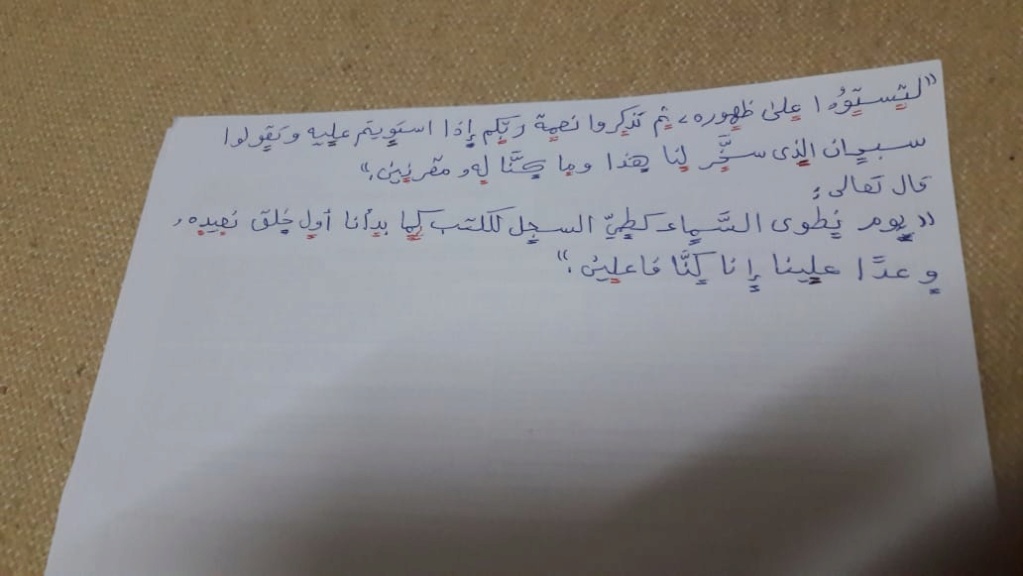 "لتستوُوا على ظهوره، ثم تذكروا نعمة ربّكم إذا استويتم عليه وتقولوا
سبحان الذى سخَّر لنا هذا وما كنَّا له و مقرنين."
قال تعالى:
"يوم نطوى السَّماء كطيّ السجل للكتب كما بدأنا أول خلق نعيده،
وعدًا علينا إنا كنَّا فاعلين."